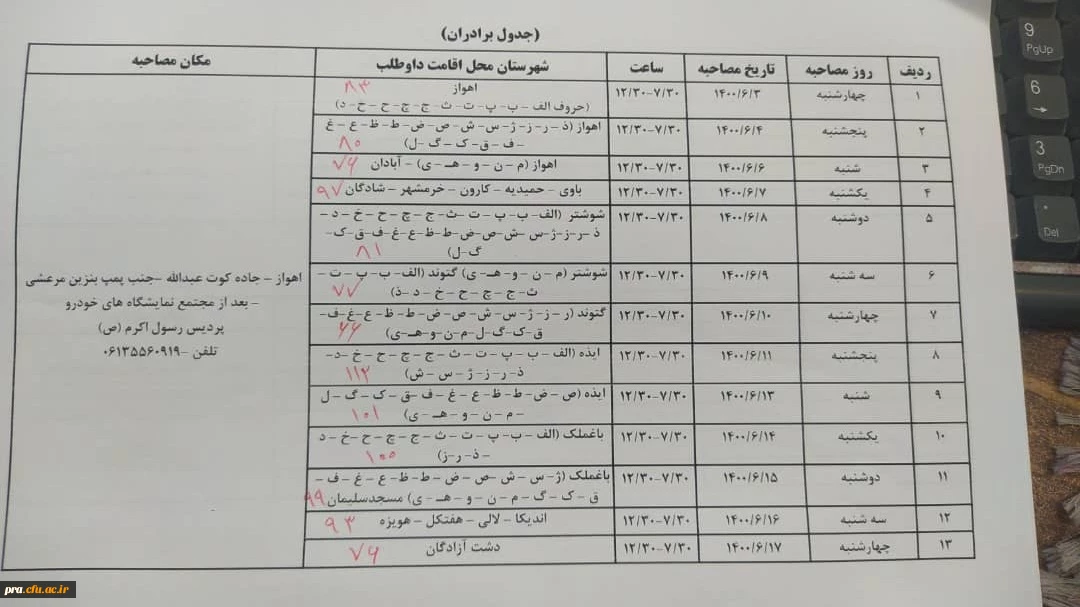 (جدول برادران)
ردیف روز مصاحبه تاریخ مصاحبه ساعت شهرستان محل اقامت داوطلب مکان مصاحبه
۱ چهارشنبه ۱۴۰۰/۶/۳ ۱۲/۳۰-۷/۳۰ اهواز ۸۳
(حروف الف – ب – پ – ت – ث – ج – چ – ح – خ – د)
۲ پنجشنبه ۱۴۰۰/۶/۴ ۱۲/۳۰-۷/۳۰ اهواز (ذ – ر – ز – ژ – س – ش – ص – ض – ط – ظ – ع – غ
– ف – ق – ک – گ – ل) ۸۰
۳ شنبه ۱۴۰۰/۶/۶ ۱۲/۳۰-۷/۳۰ اهواز (م – ن – و – هـ – ی) – آبادان ۷۶
۴ یکشنبه ۱۴۰۰/۶/۷ ۱۲/۳۰-۷/۳۰ باوی – حمیدیه – کارون – خرمشهر – شادگان ۹۷
۵ دوشنبه ۱۴۰۰/۶/۸ ۱۲/۳۰-۷/۳۰ شوشتر (الف – ب – پ – ت – ث – ج – چ – ح – خ – د –
ذ – ر – ز – ژ – س – ش – ص – ض – ط – ظ – ع – غ – ف – ق – ک –
گ – ل) ۸۱
۶ سه شنبه ۱۴۰۰/۶/۹ ۱۲/۳۰-۷/۳۰ شوشتر (م – ن – و – هـ – ی) گتوند (الف – ب – پ – ت –
ث – ج – چ – ح – خ – د – ذ) ۷۷
۷ چهارشنبه ۱۴۰۰/۶/۱۰ ۱۲/۳۰-۷/۳۰ گتوند (ر – ز – ژ – س – ش – ص – ض – ط – ظ – ع – غ – ف –
ق – ک – گ – ل – م – ن – و – هـ – ی) ۶۶
۸ پنجشنبه ۱۴۰۰/۶/۱۱ ۱۲/۳۰-۷/۳۰ ایذه (الف – ب – پ – ت – ث – ج – چ – ح – خ – د –
ذ – ر – ز – ژ – س – ش) ۱۱۳
۹ شنبه ۱۴۰۰/۶/۱۳ ۱۲/۳۰-۷/۳۰ ایذه (ص – ض – ط – ظ – ع – غ – ف – ق – ک – گ – ل
– م – ن – و – هـ – ی) ۱۰۱
۱۰ یکشنبه ۱۴۰۰/۶/۱۴ ۱۲/۳۰-۷/۳۰ باغملک (الف – ب – پ – ت – ث – ج – چ – ح – خ – د
– ذ – ر – ز) ۱۰۰
۱۱ دوشنبه ۱۴۰۰/۶/۱۵ ۱۲/۳۰-۷/۳۰ باغملک (ژ – س – ش – ص – ض – ط – ظ – ع – غ – ف –
ق – ک – گ – م – ن – و – هـ – ی) مسجدسلیمان ۹۹
۱۲ سه شنبه ۱۴۰۰/۶/۱۶ ۱۲/۳۰-۷/۳۰ اندیکا – لالی – هفتکل – هویزه ۹۳
۱۳ چهارشنبه ۱۴۰۰/۶/۱۷ ۱۲/۳۰-۷/۳۰ دشت آزادگان ۷۶
اهواز – جاده کوت عبدالله – جنب پمپ بنزین مرعشی
– بعد از مجتمع نمایشگاه های خودرو
پردیس رسول اکرم (ص)
تلفن – ۰۶۱۳۵۵۶۰۹۱۹
9
PgUp
6
→
3
PgDn
.
Del
pra.cfu.ac.ir